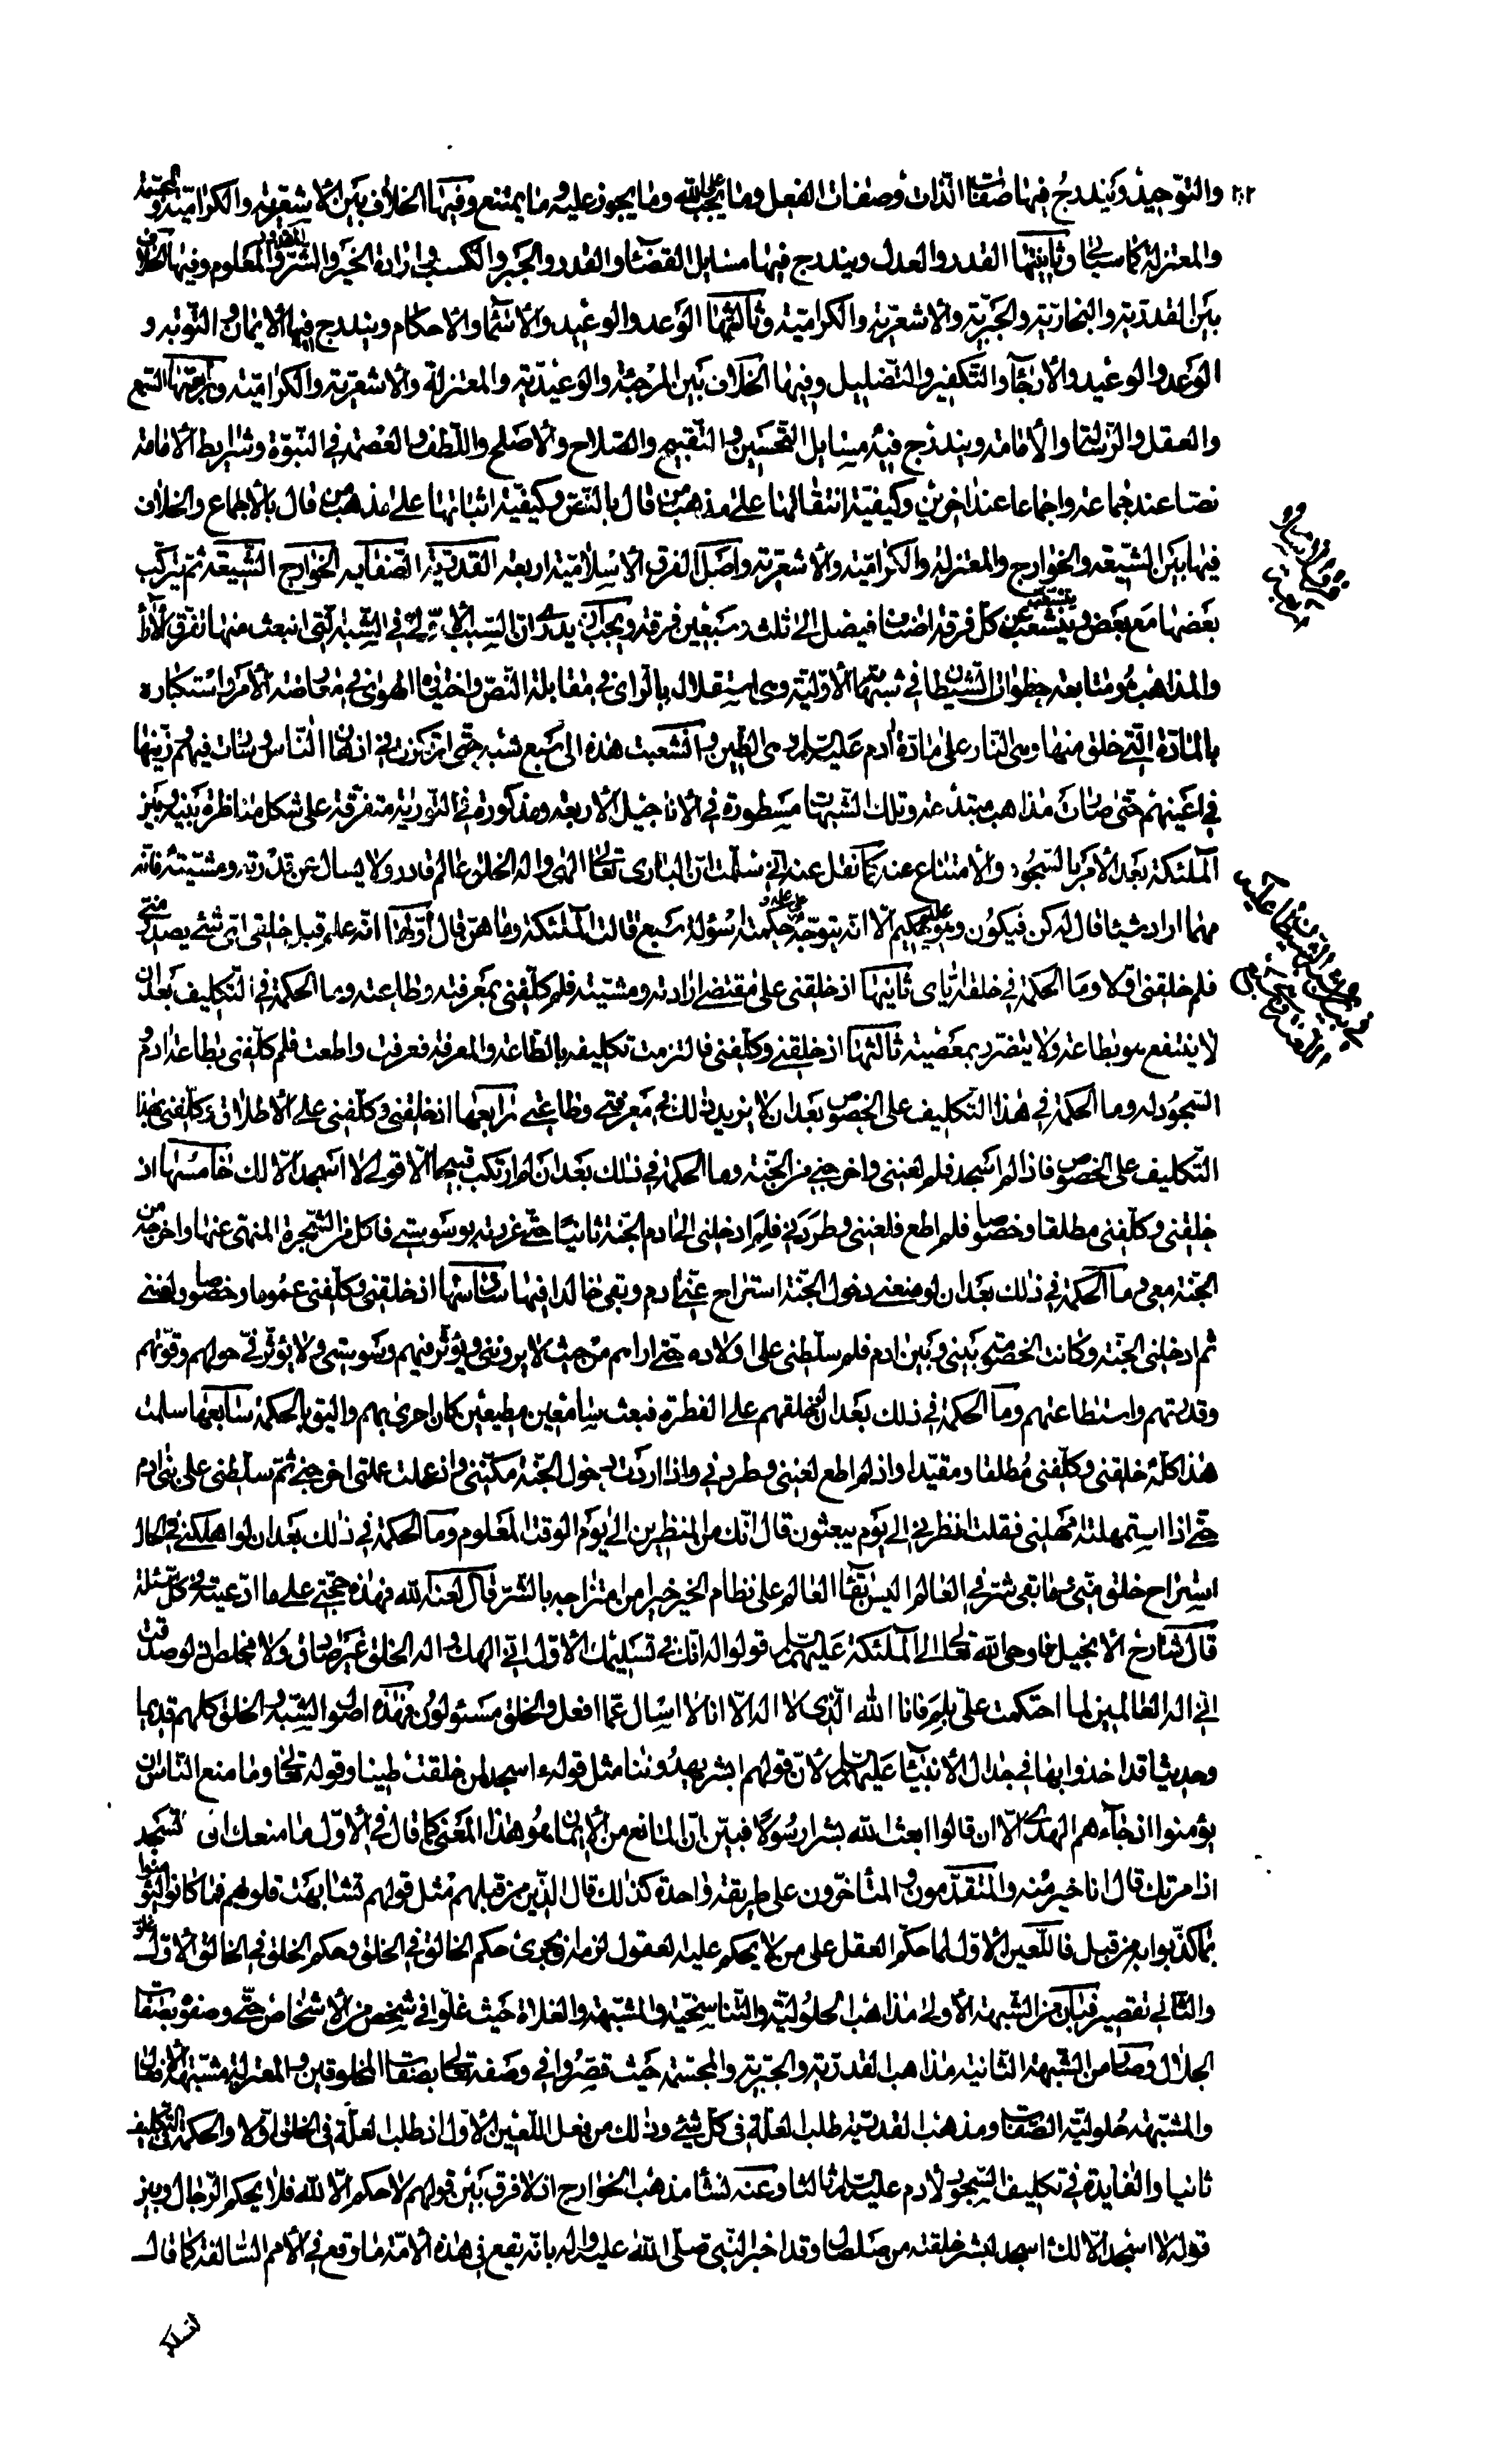 ٢٠٢
والتوحيد ويندرج فيها صفات الذات وصفات الفعل وما يجب على الله وما يجوز عليه وما يمتنع وفيها الخلاف بين الأشعرية والكرامية والمجسمة
والمعتزلة كما سيجئ وثانيتها القدر والعدل ويندرج فيها مسايل القضاء والقدر والجبر والكسب في ارادة الخير والشر والمقدور والمعلوم وفيها الخلاف
بين القدرية والنجارية والجبرية والأشعرية والكرامية وثالثتها الوعد والوعيد والأسماء والاحكام ويندرج فيها الايمان والتوبة و
الوعد والوعيد والأرجاء والتكفير والتضليل وفيها الخلاف بين المرجئة والوعيدية والمعتزلة والأشعرية والكرامية ورابعتها السمع
والعقل والرسالة والأمامة ويندرج فيه مسايل التحسين والتقبيح والصلاح والأصلح واللطف والعصمة في النبوة وشرايط الأمامة
نصا عند جماعة واجماعا عند اخرين وكيفية انتقالها على مذهب من قال بالنص وكيفية اثباتها على مذهب من قال بالأجماع والخلاف
فيها بين الشيعة والخوارج والمعتزلة والكرامية والأشعرية واصل الفرق الأسلامية اربعة القدرية الصفاتية الخوارج الشيعة ثم يتركب
بعضها مع بعض ويتشعب عن كل فرقة اصناف فيصل الى ثلث وسبعين فرقة ويجب ان يدرى ان السبب الأصلي في الشبه التي انبعث منها تفرق الأراء
والمذاهب هو متابعة خطوات الشيطان في شبهتها الأولية وهى استقلال بالراى في مقابلة النص واختيار الهوى في معارضة الأمر واستكباره
بالمادة التي خلق منها وهى النار على مادة ادم عليه السلم وهى الطين وانشعبت هذه الى سبع شبه حتى ارتكزت في اذهان الناس وسرت فيهم وزينها
في اعينهم حتى صارت مذاهب مبتدعة وتلك الشبهات مسطورة في الأناجيل الأربعة ومذكورة في التورية متفرقة على شكل مناظرة بينه وبين
الملئكة بعد الأمر بالسجود والأمتناع عنه كما نقل عنه اني سلمت ان البارى تعالى الهى واله الخلق عالم قادر ولا يسال عن قدرته ومشيته فانه
مهما اراد شيئا قال له كن فيكون وهو عليم حكيم الا انه يتوجه على علمه و حكمته اسؤلة سبع قالت الملئكة وما هن قال اولها انه علم قبل خلقى اى شئ يصدر منى
فلم خلقنى اولا وما الحكمة في خلقه اياى ثانيتها اذ خلقنى على مقتضى ارادته ومشيته فلم كلفنى بمعرفته وطاعته وما الحكمة في التكليف بعد ان
لا ينتفع هو بطاعة ولا يتضرر بمعصية ثالثتها اذ خلقنى وكلفنى فالتزمت تكليفه بالطاعة والمعرفة فعرفت واطعت فلم كلفنى بطاعة ادم و
السجود له وما الحكمة في هذا التكليف على الخصوص بعد ان لا يزيد ذلك في معرفتى وطاعتى رابعتها اذ خلقنى وكلفنى على الأطلاق وكلفنى بهذا
التكليف على الخصوص فاذا لم اسجد فلم لعننى واخرجنى من الجنة وما الحكمة في ذلك بعد ان لم ارتكب قبيحا الا قولى لا اسجد الا لك خامستها اذ
خلقنى وكلفنى مطلقا وخصوصا فلم اطع فلعننى وطردنى فلم ادخلنى الى ادم الجنة ثانيا حتى غررته بوسوستى فاكل من الشجرة المنهى عنها واخرجه من
الجنة معى وما الحكمة في ذلك بعد ان لو منعنى دخول الجنة استراح عنى ادم وبقى خالدا فيها سادستها اذ خلقنى وكلفنى عموما وخصوصا ولعننى
ثم ادخلنى الجنة وكانت الخصومة بينى وبين ادم فلم سلطنى على اولاده حتى اراهم من حيث لا يروننى ويؤثر فيهم وسوستى ولا يؤثر فيّ حولهم وقوتهم
وقدرتهم واستطاعتهم وما الحكمة في ذلك بعد ان لو خلقهم على الفطرة فبعث سامعين مطيعين كان احرى بهم واليق بالحكمة سابعتها سلمت
هذا كله خلقنى وكلفنى مطلقا ومقيدا واذ لم اطع لعننى وطردنى واذا اردت دخول الجنة مكننى واذ عملت عملى اخرجنى ثم سلطنى على بنى ادم
حتى اذا استمهلته مهلنى فقلت انظرنى الى يوم يبعثون قال انك من المنظرين الى يوم الوقت المعلوم وما الحكمة في ذلك بعد ان لو اهلكنى في الحال
استراح خلق منى وما بقى شر في العالم اليس بقاء العالم على نظام الخير خيرا من امتزاجه بالشر قال لعنه الله فهذه حجتى على ما ادعيته في كل مسئلة
قال شارح الأنجيل فاوحى الله تعالى الى الملئكة عليهم السلم قولوا له انك في تسليمك الأول انى الهك واله الخلق غير صادق ولا مخلص اذ لو صدقت
انى اله العالمين لما احتكمت علي بلم فانا الله الذى لا اله الا انا لا اسال عما افعل والخلق مسئولون فهذه اصول الشبه والخلق كلهم قديما
وحديثا قد اخذوا بها في جدال الأنبيا عليهم السلم لأن قولهم ابشر يهدوننا مثل قوله ء اسجد لمن خلقت طينا وقوله تعالى وما منع الناس ان
يؤمنوا اذ جاءهم الهدى الا ان قالوا ابعث الله بشرا رسولا فبين ان المانع من الأيمان هو هذا المعنى كما قال في الأول ما منعك ان تسجد
اذ امرتك قال انا خير منه والمتقدمون والمتأخرون على طريقة واحدة كذلك قال الذين من قبلهم مثل قولهم تشابهت قلوبهم فما كانوا ليؤمنوا
بما كذبوا به من قبل فاللعين الأول لما حكم العقل على من لا يحكم عليه العقول لزم ان يجرى حكم الخالق في الخلق وحكم الخلق في الخالق الأول غلو
والثانى تقصير فبان من الشبهة الأولى مذاهب الحلولية والتناسخية والمشبهة والغلاة حيث غلوا في شخص من الأشخاص حتى وصفوه بصفات
الجلال وصار من الشبهة الثانية مذاهب القدرية والجبرية والمجسمة حيث قصروا في وصفه تعالى بصفات المخلوقين والمعتزلة مشبهة الأفعال
والمشبهة حلولية الصفات ومذهب القدرية طلب العلة في كل شئ وذلك من فعل اللعين الأول اذ طلب العلة في الخلق اولا والحكمة في التكليف
ثانيا والفايدة في تكليف السجود لأدم عليه السلم ثالثا وعنه نشا مذهب الخوارج اذ لا فرق بين قولهم لا حكم الا لله فلا يحكم الرجال وبين
قوله لا اسجد الا لك ء اسجد لبشر خلقته من صلصال وقد اخبر النبى صلى الله عليه واله بانه يقع في هذه الأمة ما وقع في الأمم السالفة كما قال
لتسلكن